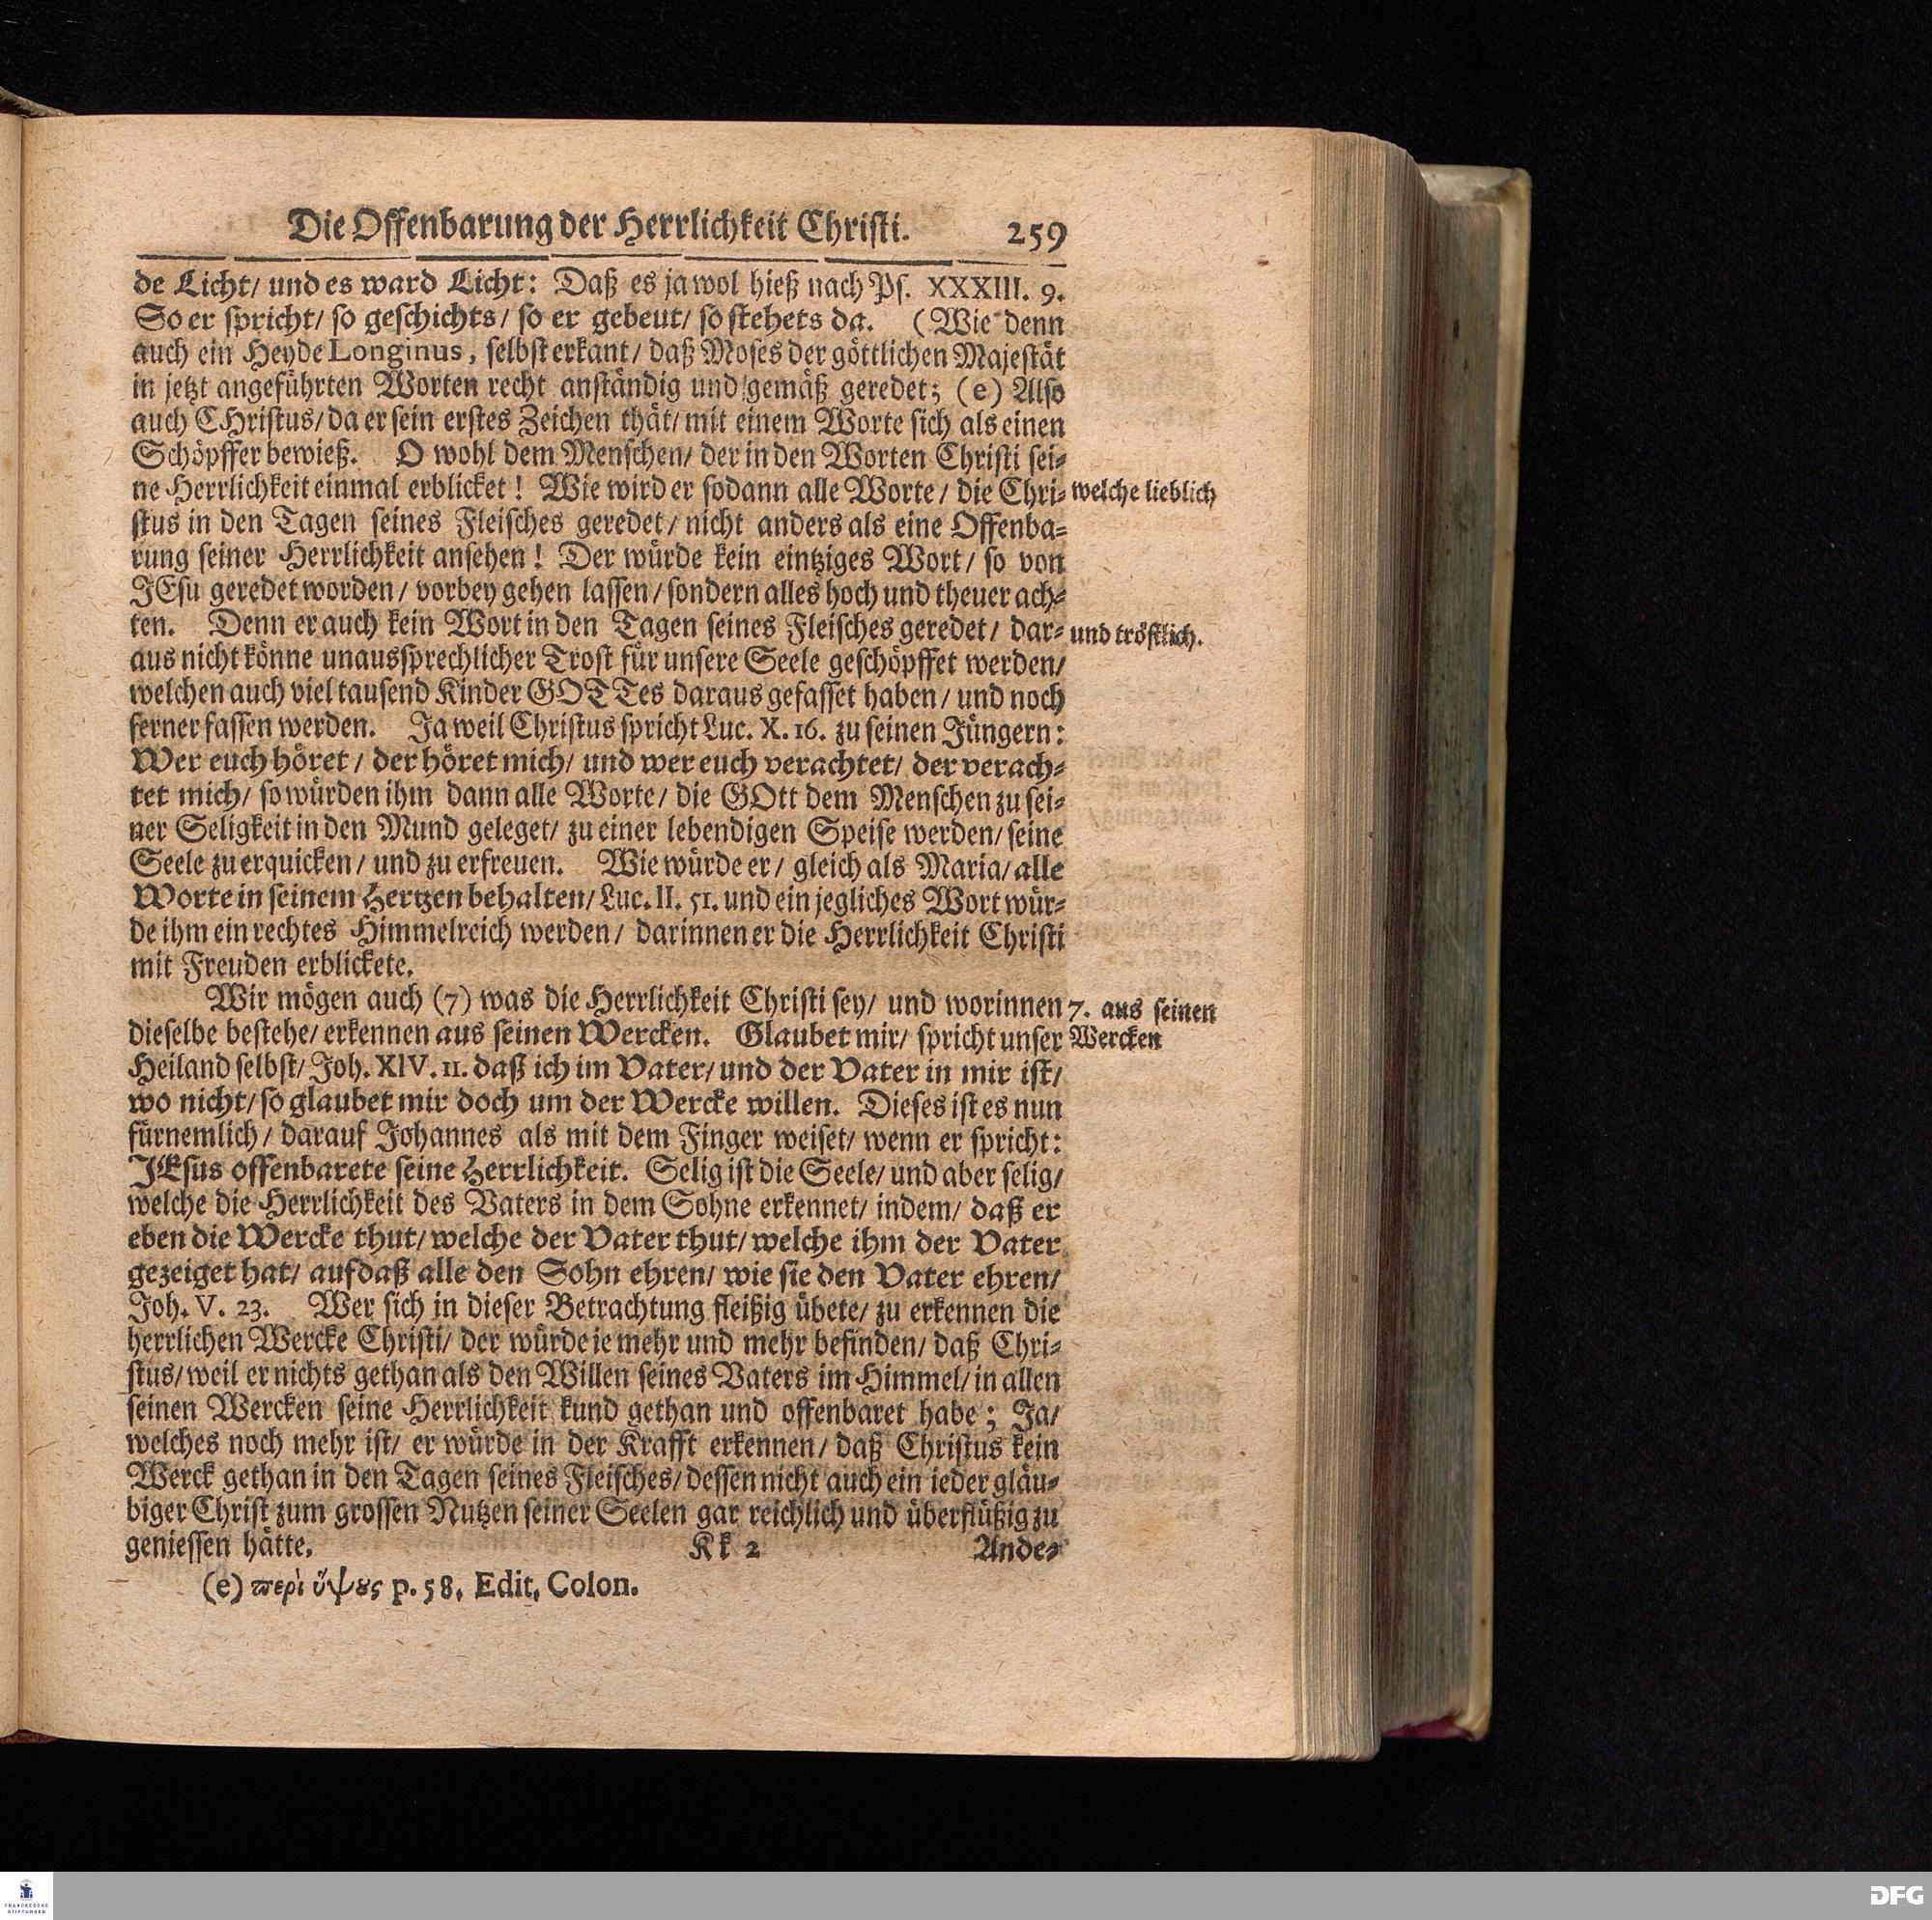 Die Offenbarung der Herrlichkeit Christi. 259
de Licht/ und es ward Licht: Daß es ja wol hieß nach Ps. XXXIII. 9.
So er spricht/ so geschichts/ so er gebeut/ so stehets da. (Wie denn
auch ein Heyde Longinus, selbst erkant/ daß Moses der göttlichen Majestät
in jetzt angeführten Worten recht anständig und gemäß geredet; (e) Also
auch CHristus/ da er sein erstes Zeichen thät/ mit einem Worte sich als einen
Schöpffer bewieß. O wohl dem Menschen/ der in den Worten Christi sei-
ne Herrlichkeit einmal erblicket! Wie wird er sodann alle Worte/ die Chri-
welche lieblich
stus in den Tagen seines Fleisches geredet/ nicht anders als eine Offenba-
rung seiner Herrlichkeit ansehen! Der würde kein eintziges Wort/ so von
JEsu geredet worden/ vorbey gehen lassen/ sondern alles hoch und theuer ach-
ten. Denn er auch kein Wort in den Tagen seines Fleisches geredet/ dar-
und tröstlich.
aus nicht könne unaussprechlicher Trost für unsere Seele geschöpffet werden/
welchen auch viel tausend Kinder GOTTes daraus gefasset haben/ und noch
ferner fassen werden. Ja weil Christus spricht Luc. X. 16. zu seinen Jüngern:
Wer euch höret/ der höret mich/ und wer euch verachtet/ der verach-
tet mich/ so würden ihm dann alle Worte/ die GOtt dem Menschen zu sei-
ner Seligkeit in den Mund geleget/ zu einer lebendigen Speise werden/ seine
Seele zu erquicken/ und zu erfreuen. Wie würde er/ gleich als Maria/ alle
Worte in seinem Hertzen behalten/ Luc. II. 51. und ein jegliches Wort wür-
de ihm ein rechtes Himmelreich werden/ darinnen er die Herrlichkeit Christi
mit Freuden erblickete.
Wir mögen auch (7) was die Herrlichkeit Christi sey/ und worinnen
7. aus seinen
dieselbe bestehe/ erkennen aus seinen Wercken. Glaubet mir/ spricht unser
Wercken
Heiland selbst/ Joh. XIV. 11. daß ich im Vater/ und der Vater in mir ist/
wo nicht/ so glaubet mir doch um der Wercke willen. Dieses ist es nun
fürnemlich/ darauf Johannes als mit dem Finger weiset/ wenn er spricht:
JEsus offenbarete seine Herrlichkeit. Selig ist die Seele/ und aber selig/
welche die Herrlichkeit des Vaters in dem Sohne erkennet/ indem/ daß er
eben die Wercke thut/ welche der Vater thut/ welche ihm der Vater
gezeiget hat/ aufdaß alle den Sohn ehren/ wie sie den Vater ehren/
Joh. V. 23. Wer sich in dieser Betrachtung fleißig übete/ zu erkennen die
herrlichen Wercke Christi/ der würde ie mehr und mehr befinden/ daß Chri-
stus/ weil er nichts gethan als den Willen seines Vaters im Himmel/ in allen
seinen Wercken seine Herrlichkeit kund gethan und offenbaret habe; Ja/
welches noch mehr ist/ er würde in der Krafft erkennen/ daß Christus kein
Werck gethan in den Tagen seines Fleisches/ dessen nicht auch ein ieder gläu-
biger Christ zum grossen Nutzen seiner Seelen gar reichlich und überflüßig zu
geniessen hätte. Kk 2 Ande-
(e) περὶ ὕψους p. 58. Edit. Colon.
FRANCKESCHE
STIFTUNGEN
DFG